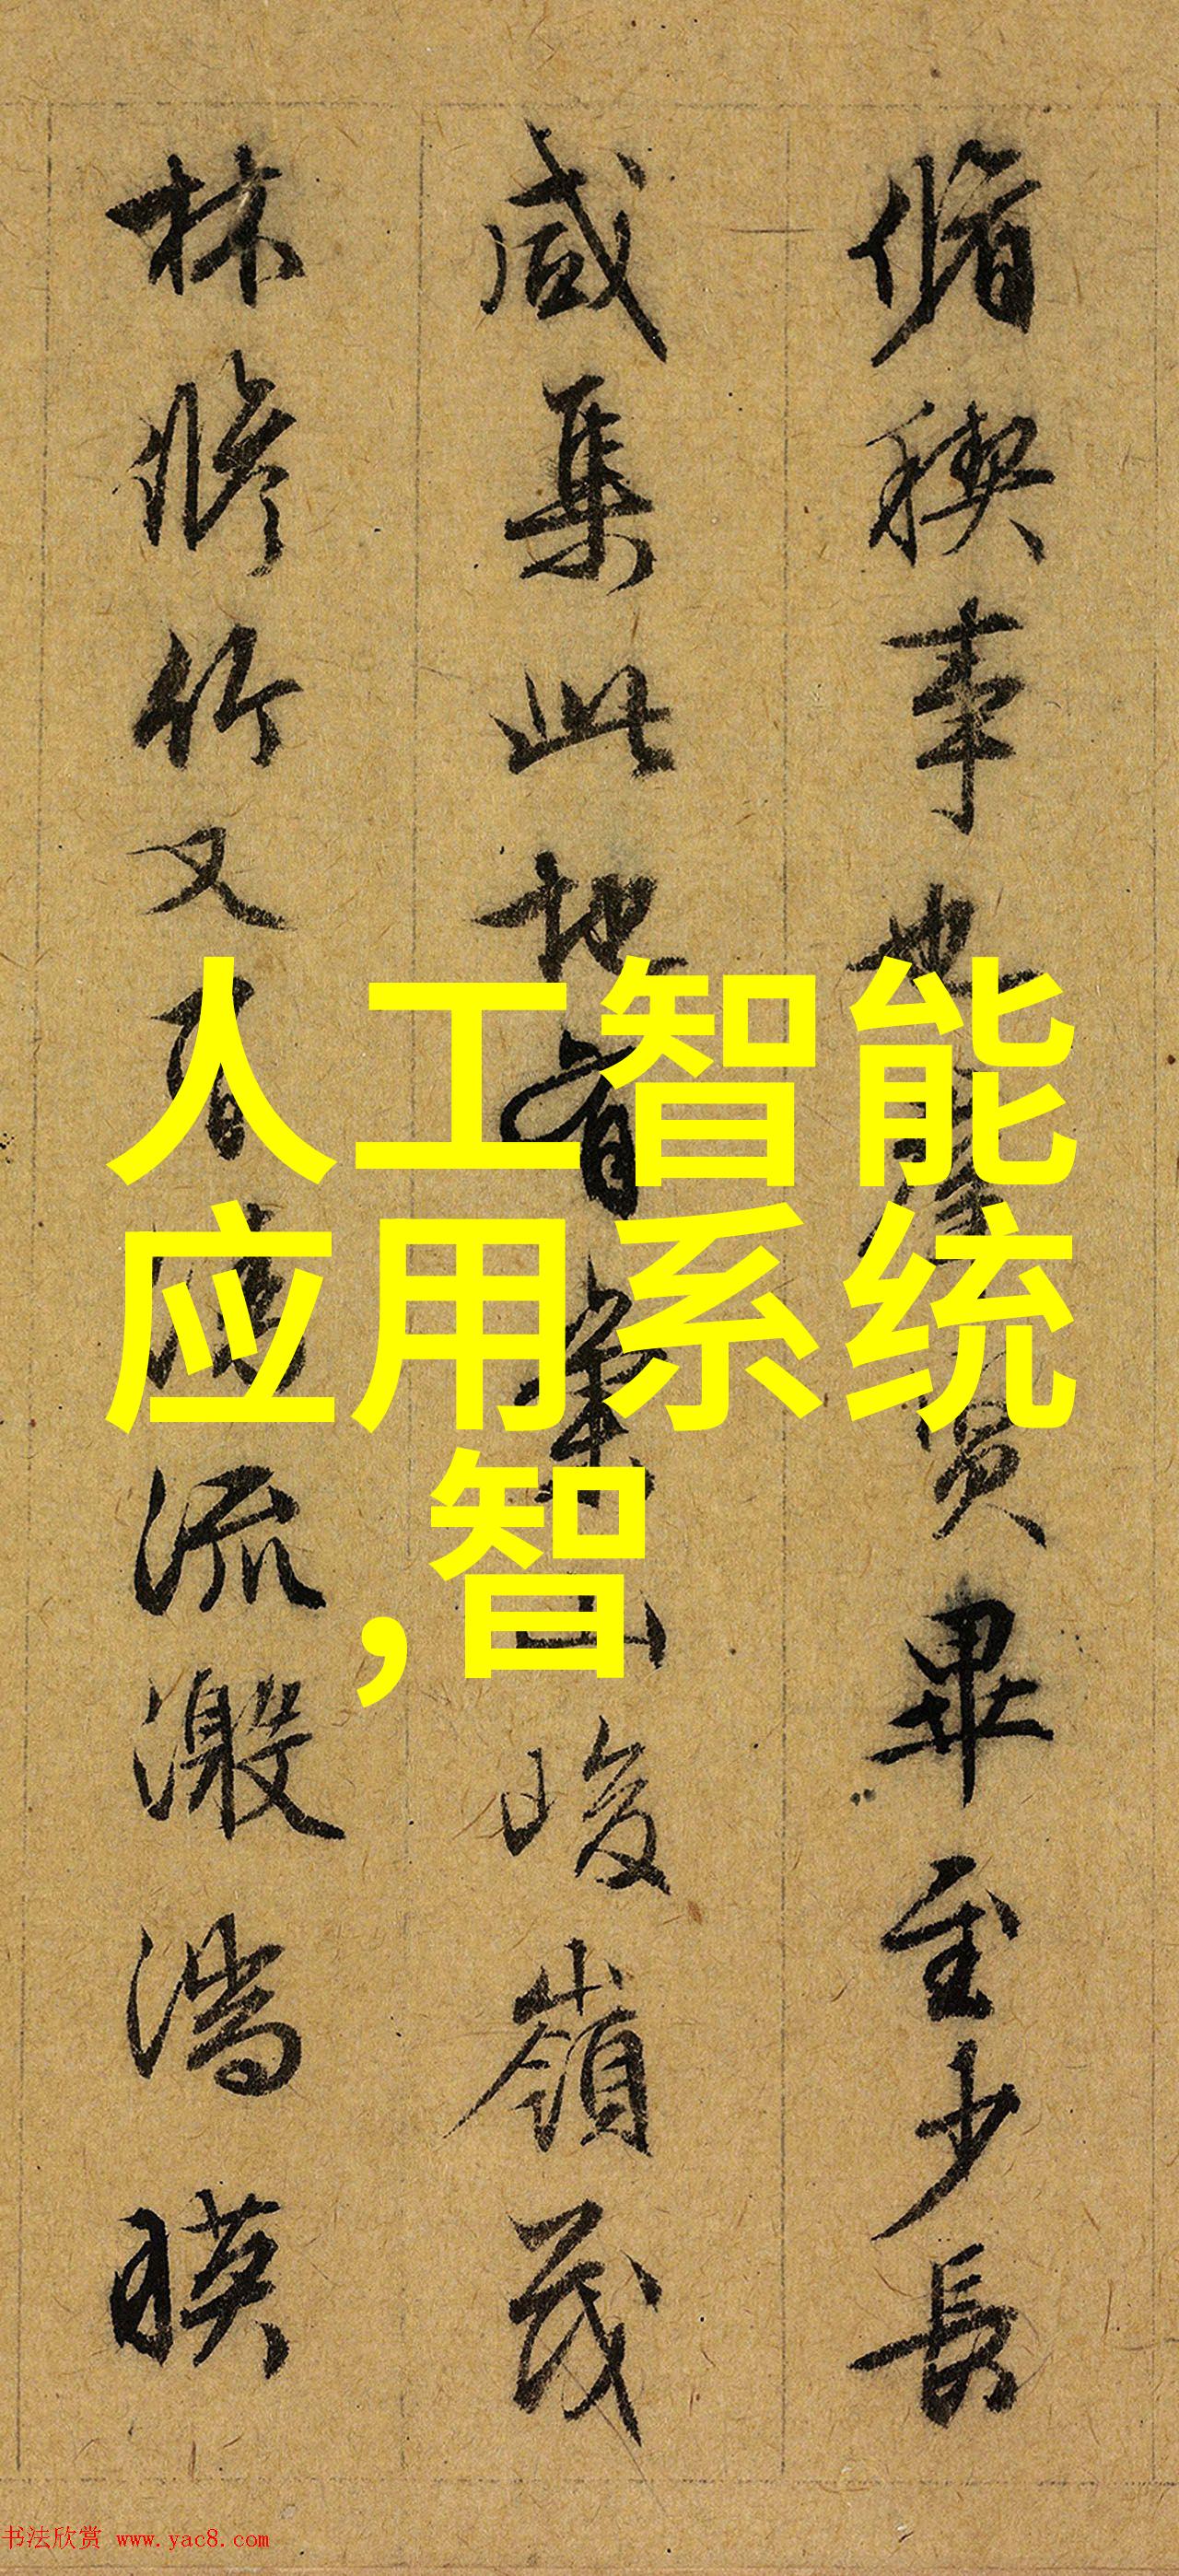 脩稧事也賢畢至少長
咸集此地有山峻嶺茂
林修竹又有流激湍暎
人工智能
应用系统
,智
书法欣赏 www.yac8.com